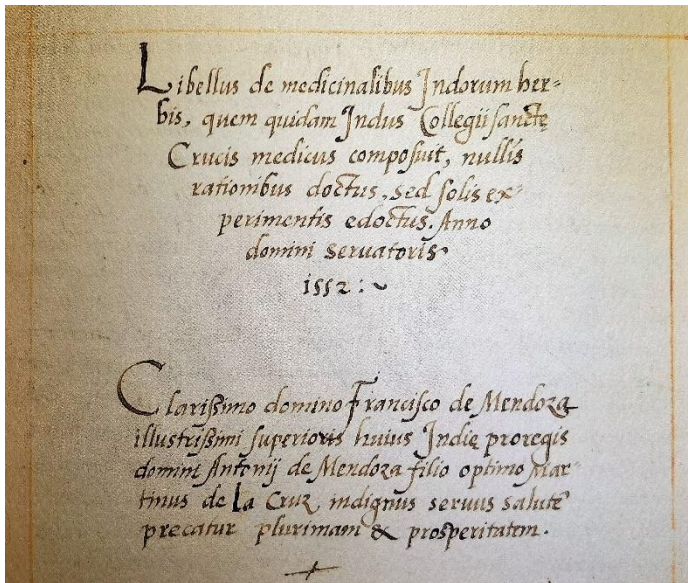 Libellus de medicinalibus Indorum her=
bis, quem quidam Indus Collegii sancte
Crucis medicus composuit, nullis
rationibus doctus, sed solis ex=
perimentis edoctus. Anno
domini servatoris
1552:~
Clarissimo domino Francisco de Mendoza
illustrissimi superioris huius Indię proregis
domini Antonij de Mendoza filio optimo Mar=
tinus de la Cruz indignus servus salutē
precatur plurimam & prosperitatem.